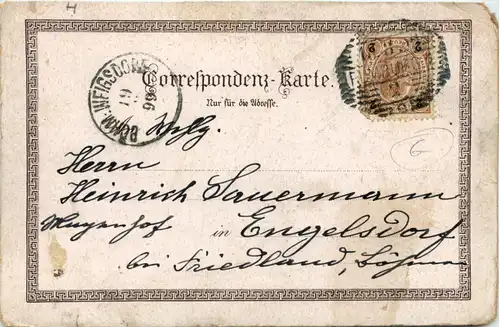 Correspondenz-Karte.
Nur für die Adresse.
BÖHM. WEIGSDORF
19
96
2 2
Herrn
Heinrich Sauermann
in Engelsdorf
bei Friedland, Böhmen
G